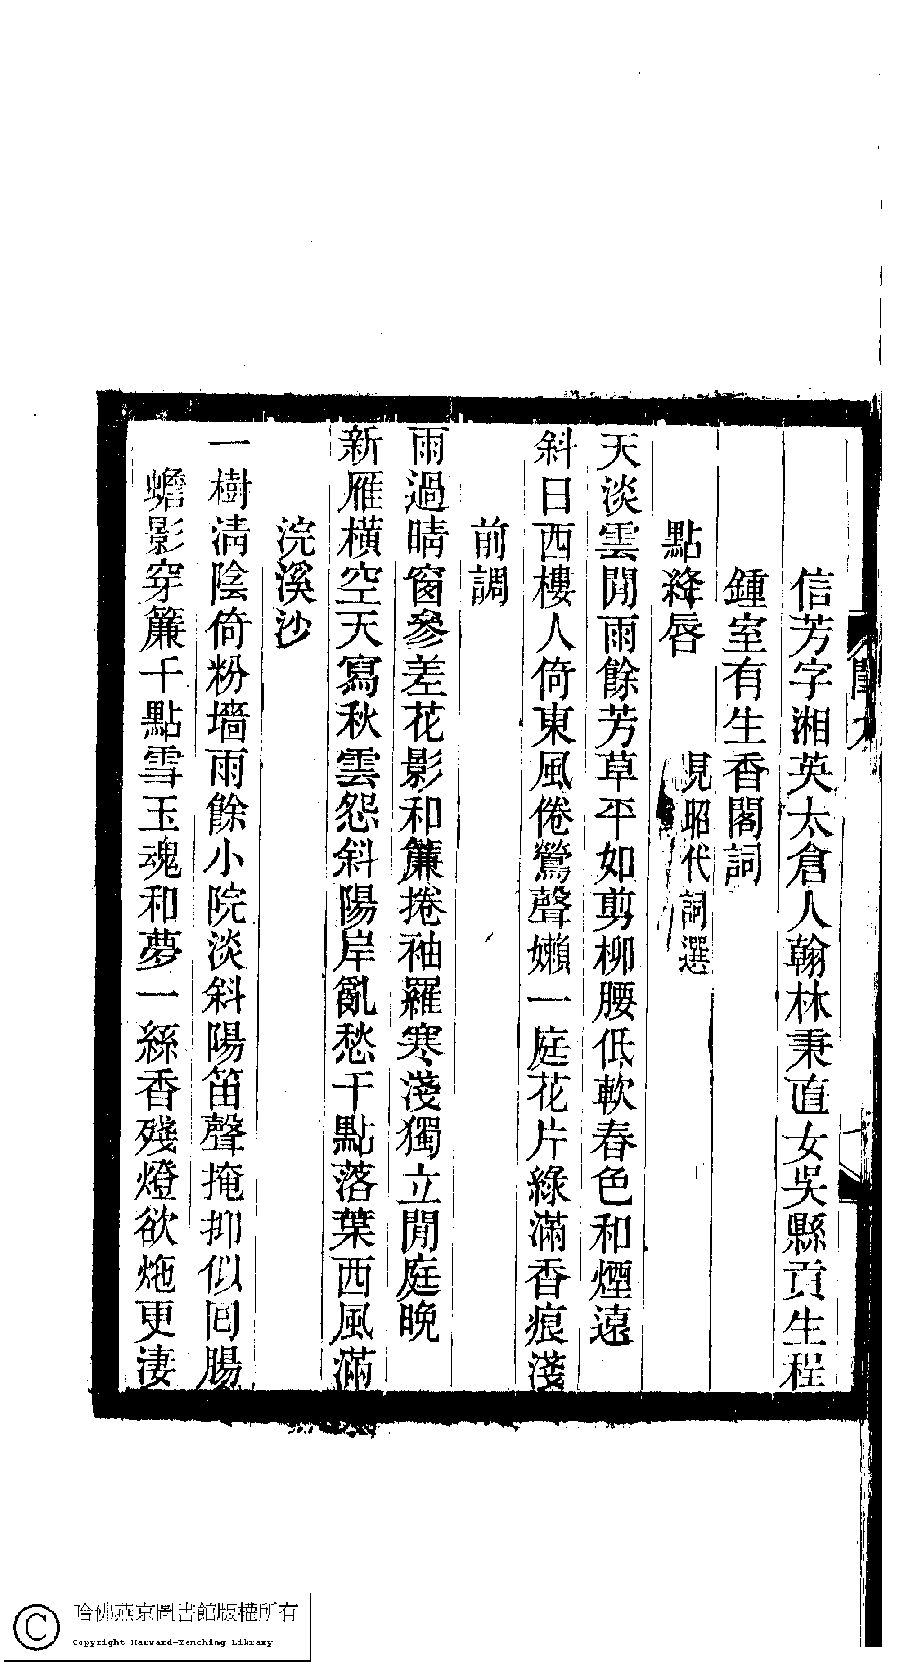 信芳字湘英太倉人翰林秉直女吳縣貢生程
鍾室有生香閣詞
點絳唇
見昭代詞選
天淡雲閒雨餘芳草平如剪柳腰低軟春色和煙遠
斜日西樓人倚東風倦鶯聲嬾一庭花片綠滿香痕淺
前調
雨過晴窗參差花影和簾捲袖羅寒淺獨立閒庭晚
新雁橫空天寫秋雲怨斜陽岸亂愁千點落葉西風滿
浣溪沙
一樹清陰倚粉墻雨餘小院淡斜陽笛聲掩抑似回腸
蟾影穿簾千點雪玉魂和夢一絲香殘燈欲灺更淒
哈佛燕京圖書館版權所有
Copyright Harvard-Yenching Library